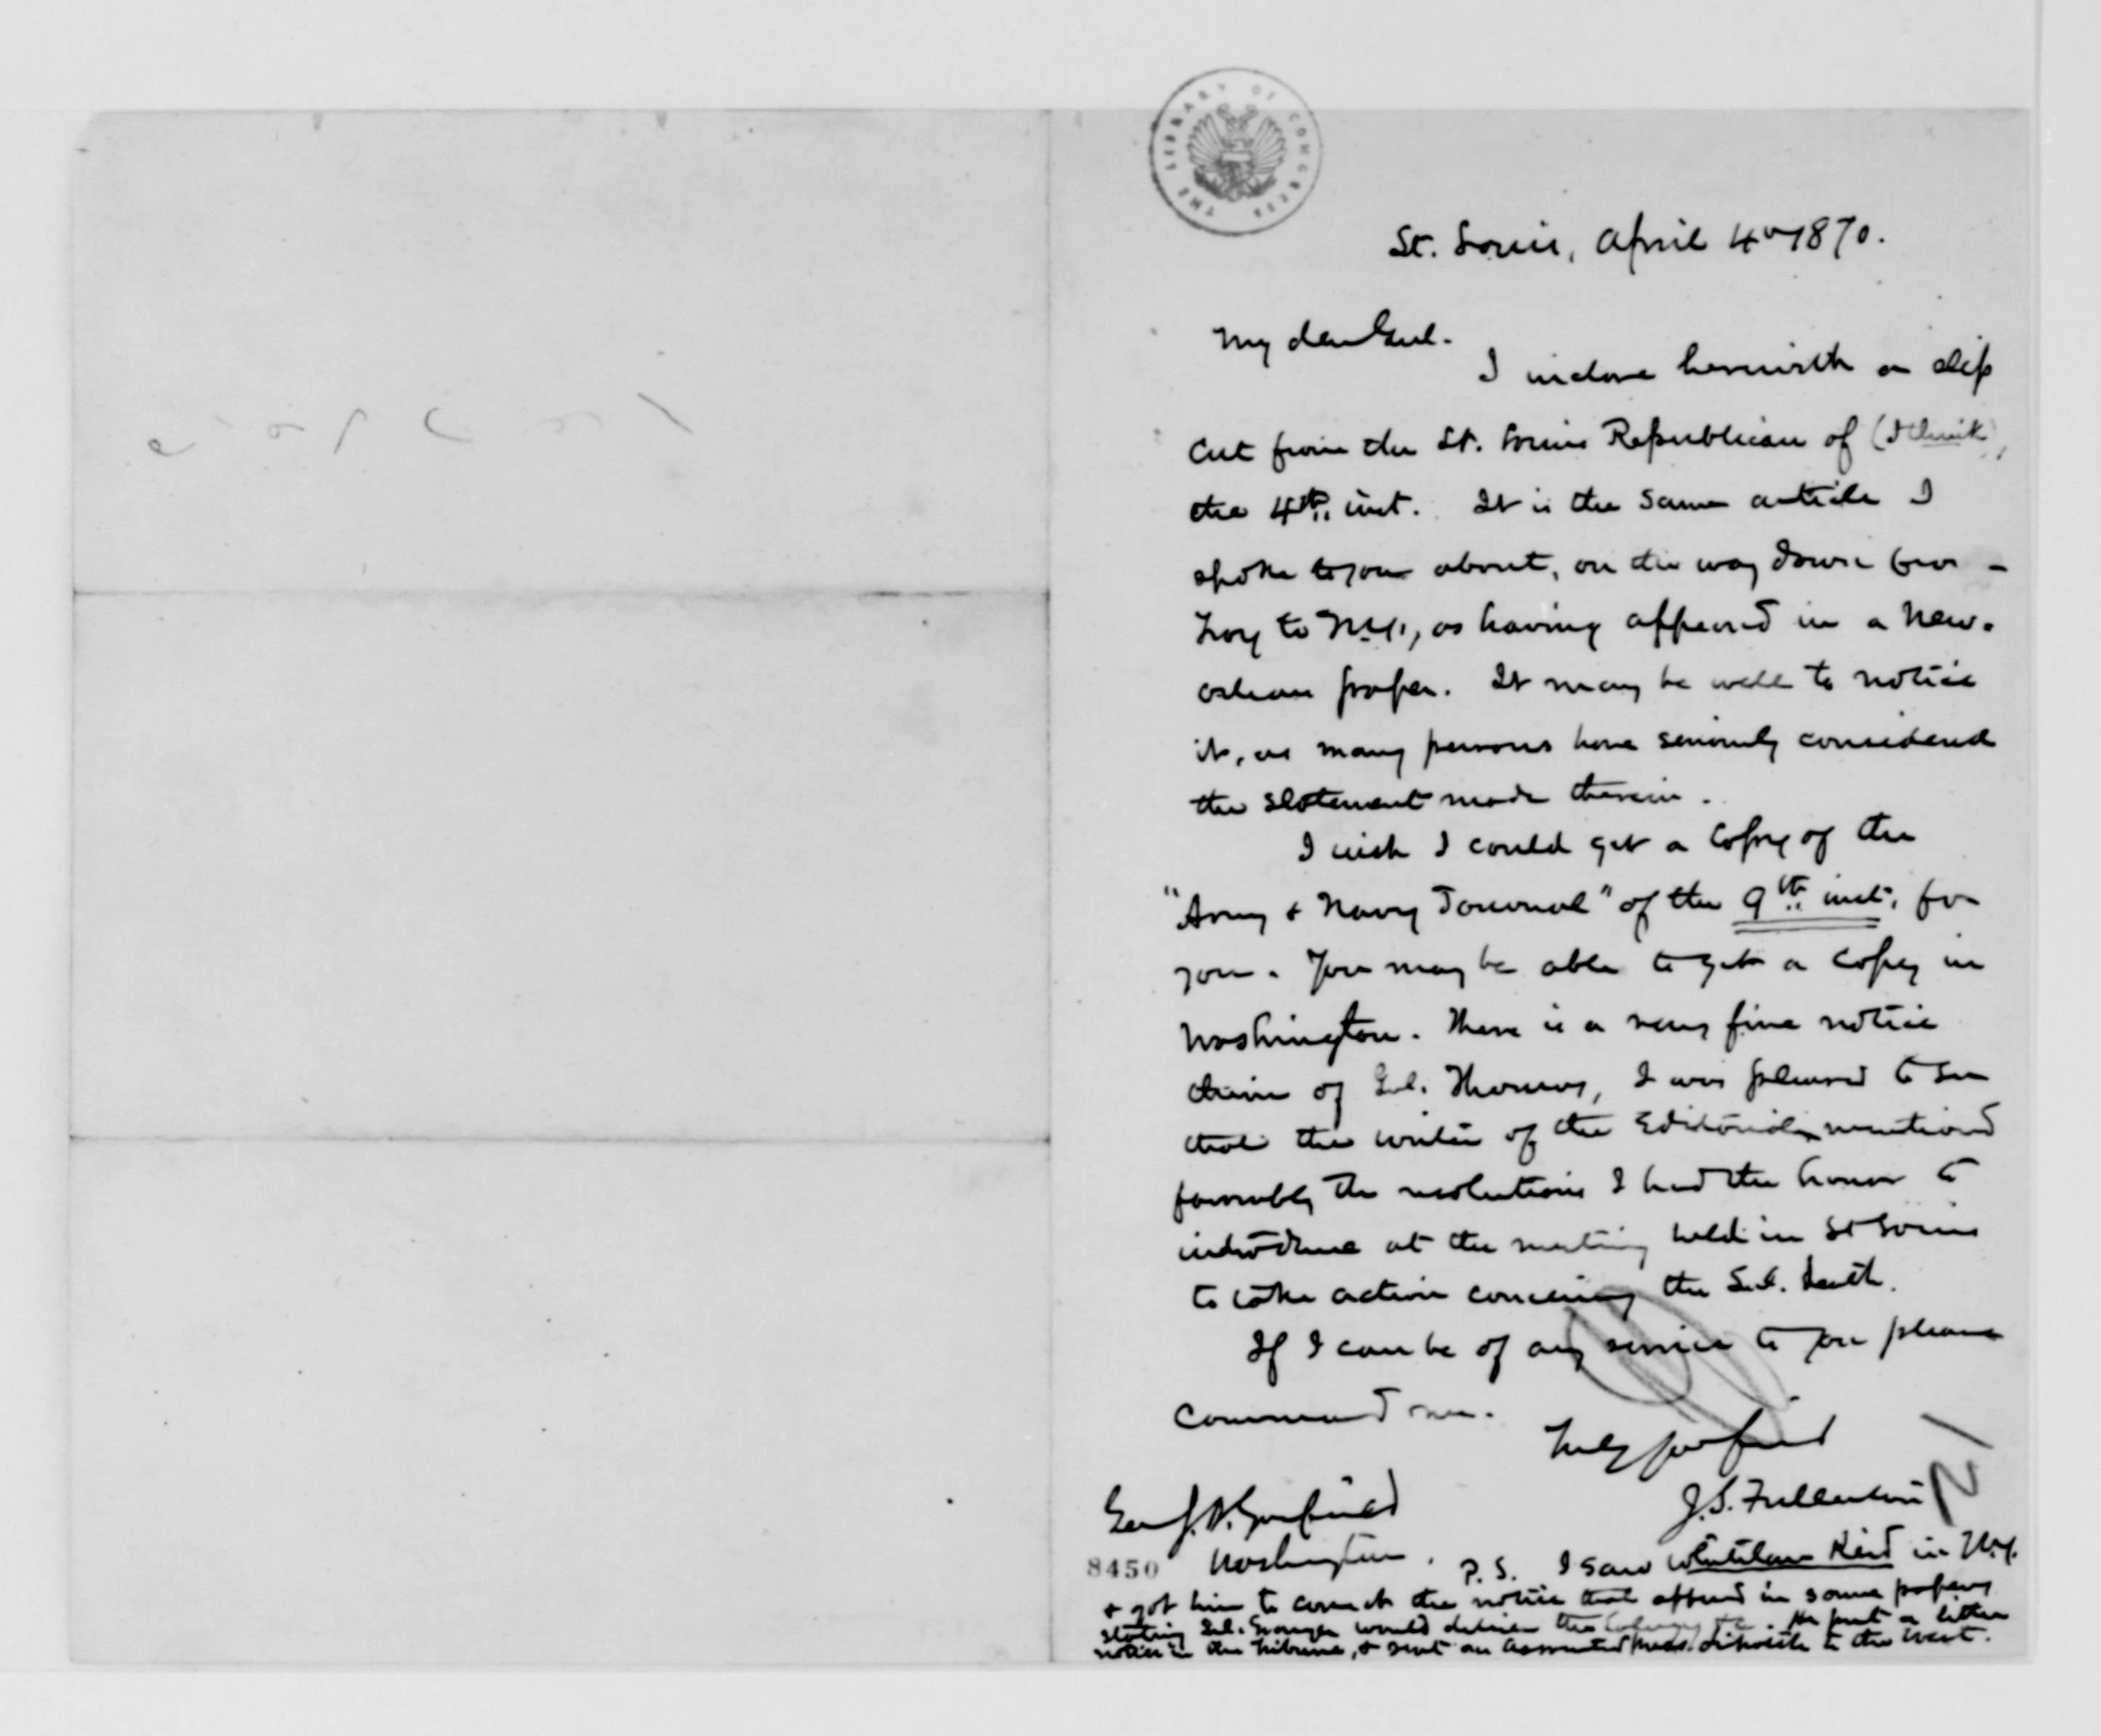 THE LIBRARY OF CONGRESS
St. Louis, April 1870.
My dear Genl.
I inclose herewith a slip
cut from the St. Louis Republican of (I think),
the 4th inst. It is the same article I
spoke to you about, on the way down from
Troy to N.Y., as having appeared in a New-
orleans paper. It may be well to notice
it, as many persons have seriously considered
the statement made therein.
I wish I could get a copy of the
"Army & Navy Journal" of the 9th inst. for
you. You may be able to get a copy in
Washington. There is a very fine notice
therein of Gnl. Thomas, I was pleased to see
that the writer of the Editorial mentioned
favorably the resolutions I had the honor to
introduce at the meeting held in St Louis
to take action concerning the death.
If I can be of any service to you please
command me.
Truly your friend
J. S. Fullerton
Gen J. A. Garfield
Washington.
8450
P.S. I saw Whitelaw Reid in N.Y.
& got him to correct the notice that appeared in some papers
stating Gnl. Granger would deliver the. He put a little
notice in the Tribune, & sent an Associated press dispatch to the West.